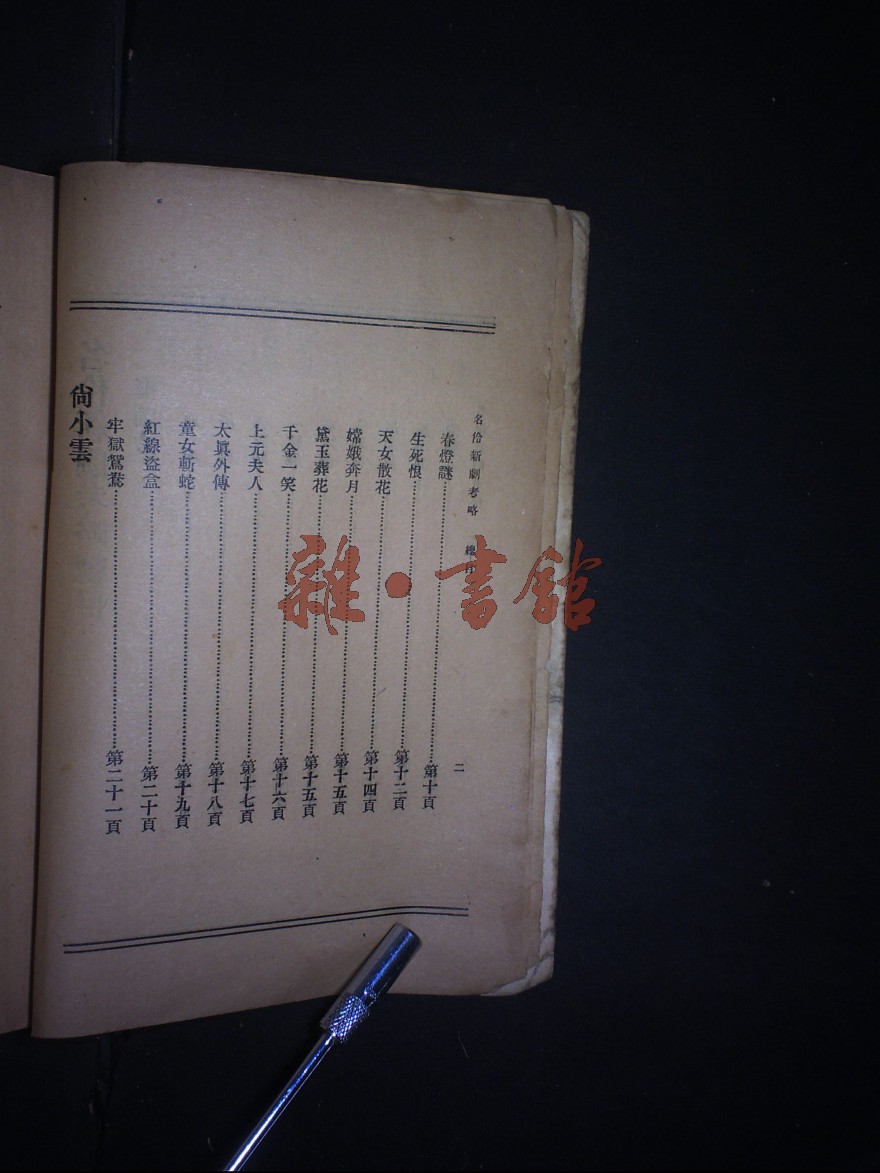 名伶新劇考略 總目 二
春燈謎……第十頁
生死恨……第十二頁
天女散花……第十四頁
嫦娥奔月……第十五頁
黛玉葬花……第十五頁
千金一笑……第十六頁
上元夫人……第十七頁
太眞外傳……第十八頁
童女斬蛇……第十九頁
紅線盜盒……第二十頁
牢獄鴛鴦……第二十一頁
尙小雲
雜·書館